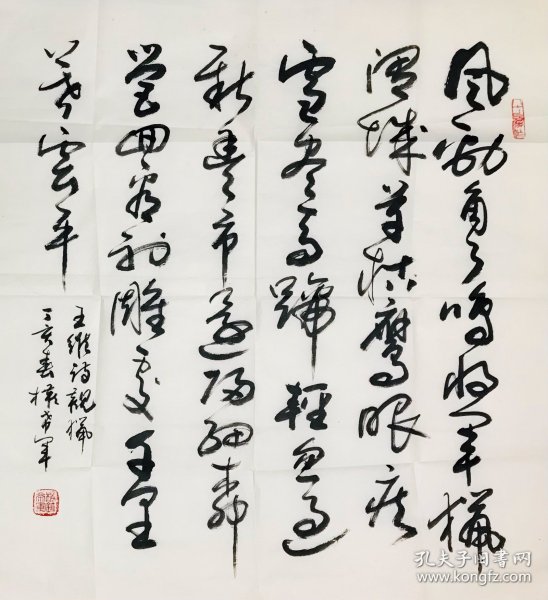 風勁角弓鳴將軍獵
渭城草枯鷹眼疾
雪盡馬蹄輕忽過
新豐市還歸細柳
營回看射雕處千里
暮雲平
王維詩觀獵
丁亥春
孔夫子旧书网
www.kongfz.com